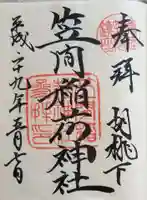 奉拝
胡桃下
笠間稲荷神社
平成二十九年五月七日